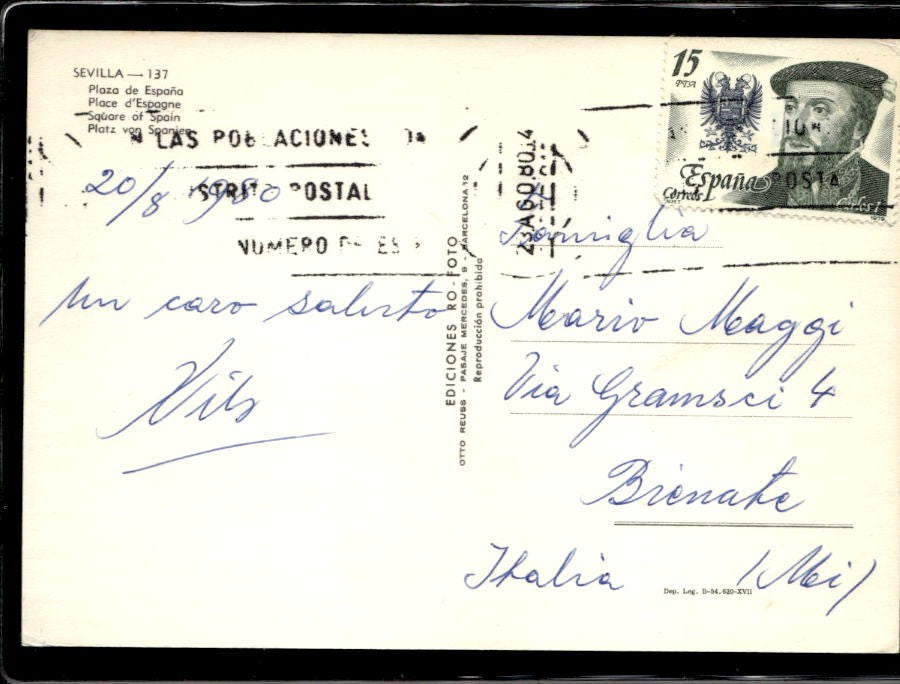 SEVILLA — 137
Plaza de España
Place d'Espagne
Square of Spain
Platz von Spanien
LAS POBLACIONES
POSTAL
NUMERO DE
20/8 1980
Un caro saluto
EDICIONES RO-FOTO
OTTO REUSS - PASAJE MERCEDES, 9 - BARCELONA-12
Reproducción prohibida
23 AGO 80 14
15
PTA
España
Correos
Carlos I
1979
Famiglia
Mario Maggi
Via Gramsci 4
Bienate
Italia (Mi)
Dep. Leg. B-54.620-XVII